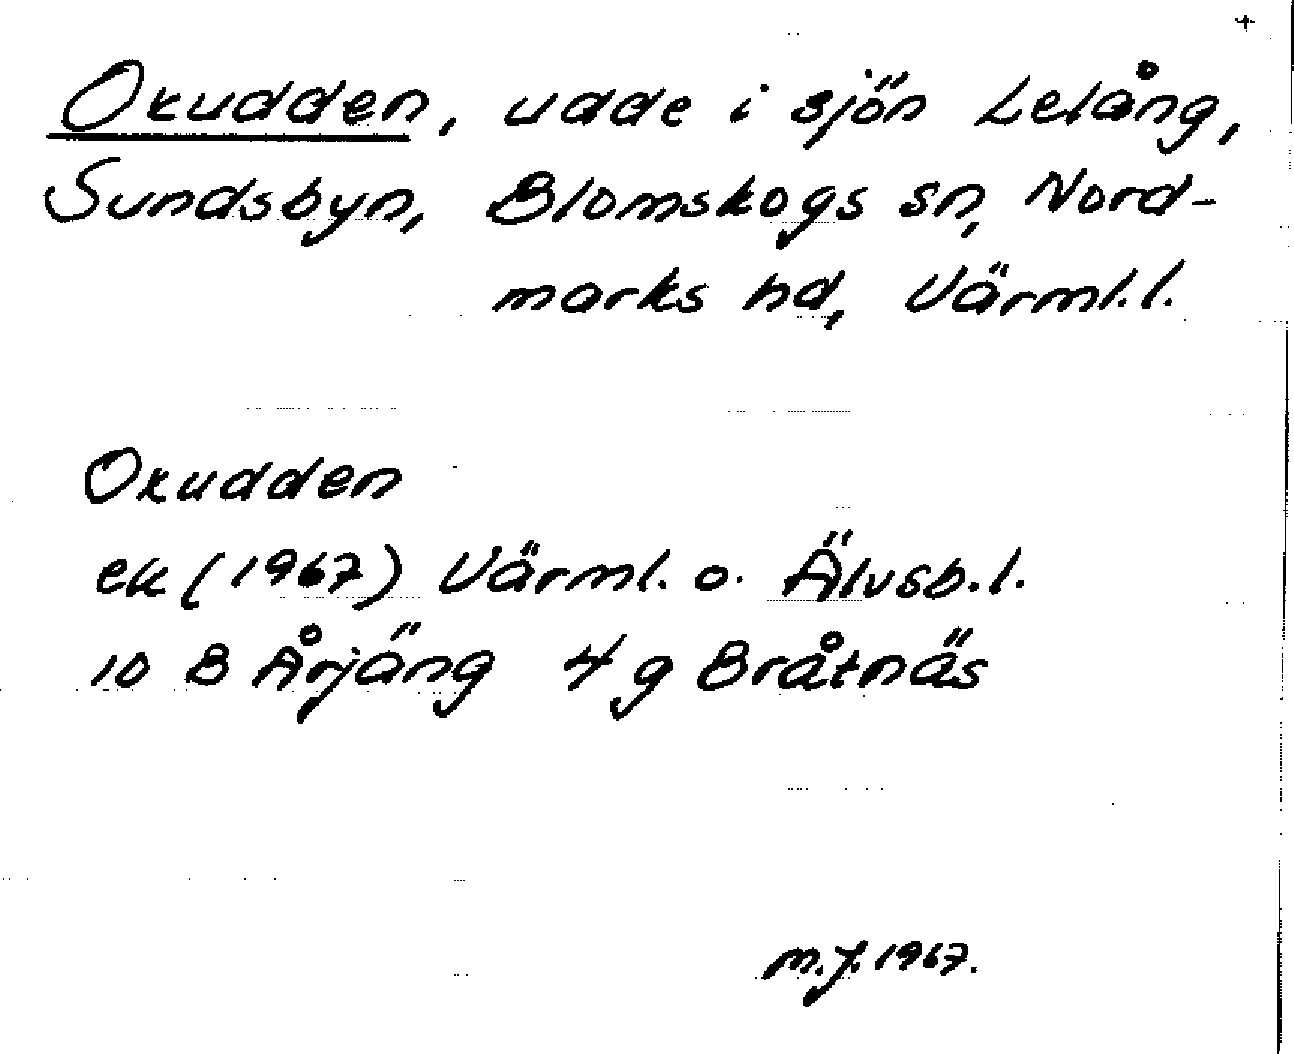 +
Okudden, udde i sjön Lelång,
Sundsbyn, Blomskogs sn, Nord-
marks hd, Värml.l.
Okudden
ek (1967) Värml. o. Älvsb.l.
10 B Årjäng 4 g Bråtnäs
M.J. 1967.